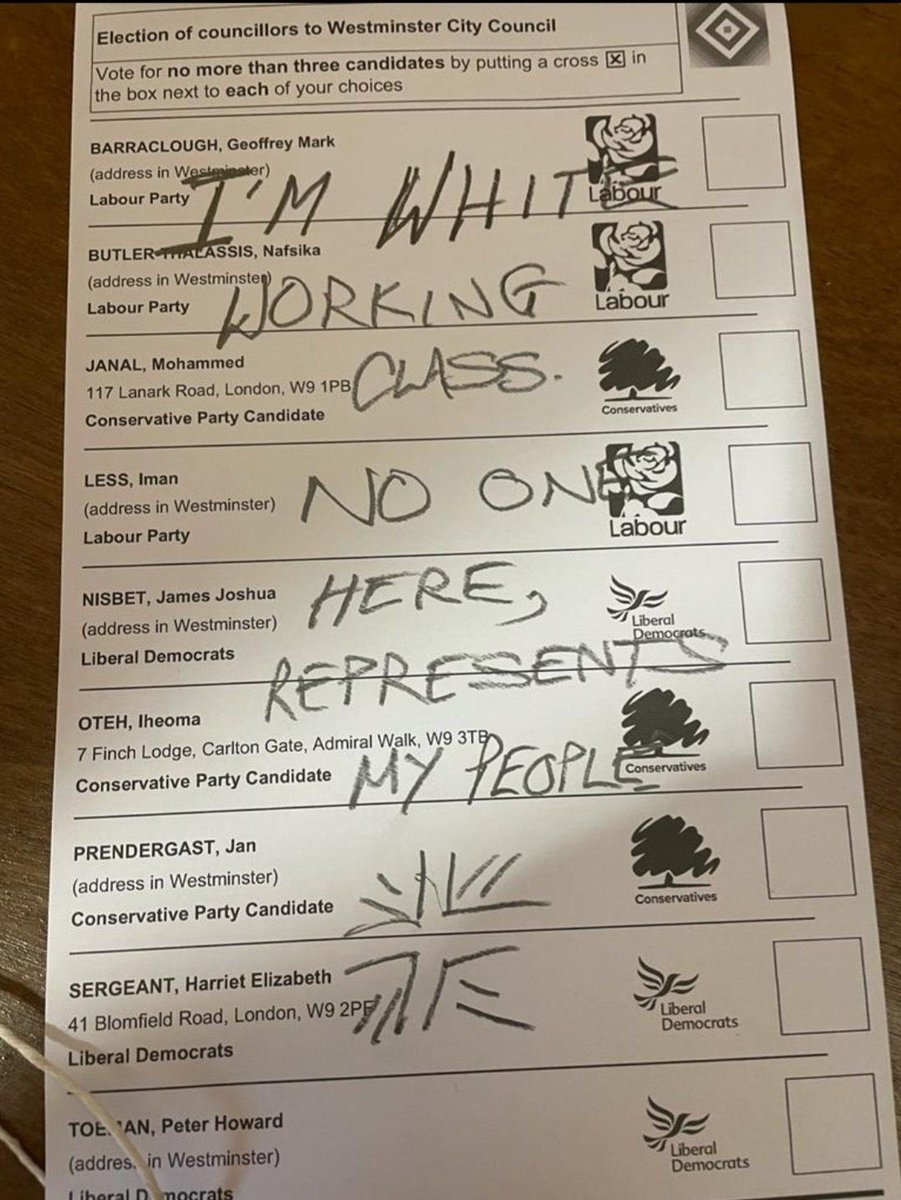 Election of councillors to Westminster City Council
Vote for no more than three candidates by putting a cross ☒ in
the box next to each of your choices
BARRACLOUGH, Geoffrey Mark
(address in Westminster)
Labour Party
Labour
I'M WHITE
BUTLER-THALASSIS, Nafsika
(address in Westminster)
Labour Party
Labour
WORKING
JANAL, Mohammed
117 Lanark Road, London, W9 1PB
Conservative Party Candidate
Conservatives
CLASS.
LESS, Iman
(address in Westminster)
Labour Party
Labour
NO ONE
NISBET, James Joshua
(address in Westminster)
Liberal Democrats
Liberal
Democrats
HERE,
REPRESENTS
OTEH, Iheoma
7 Finch Lodge, Carlton Gate, Admiral Walk, W9 3TB
Conservative Party Candidate
Conservatives
MY PEOPLE
PRENDERGAST, Jan
(address in Westminster)
Conservative Party Candidate
Conservatives
SERGEANT, Harriet Elizabeth
41 Blomfield Road, London, W9 2PF
Liberal Democrats
Liberal
Democrats
Peter Howard
(address in Westminster)
Liberal Democrats
Liberal
Democrats